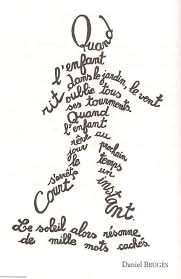 Quand
l'enfant
rit, dans le jardin, le vent
oublie tous
ses tourments
Quand
l'enfant
rêve au prochain
jour le temps
s'arrête un
Court instant.
Le soleil alors résonne
de mille mots cachés
Daniel BRUGÈS